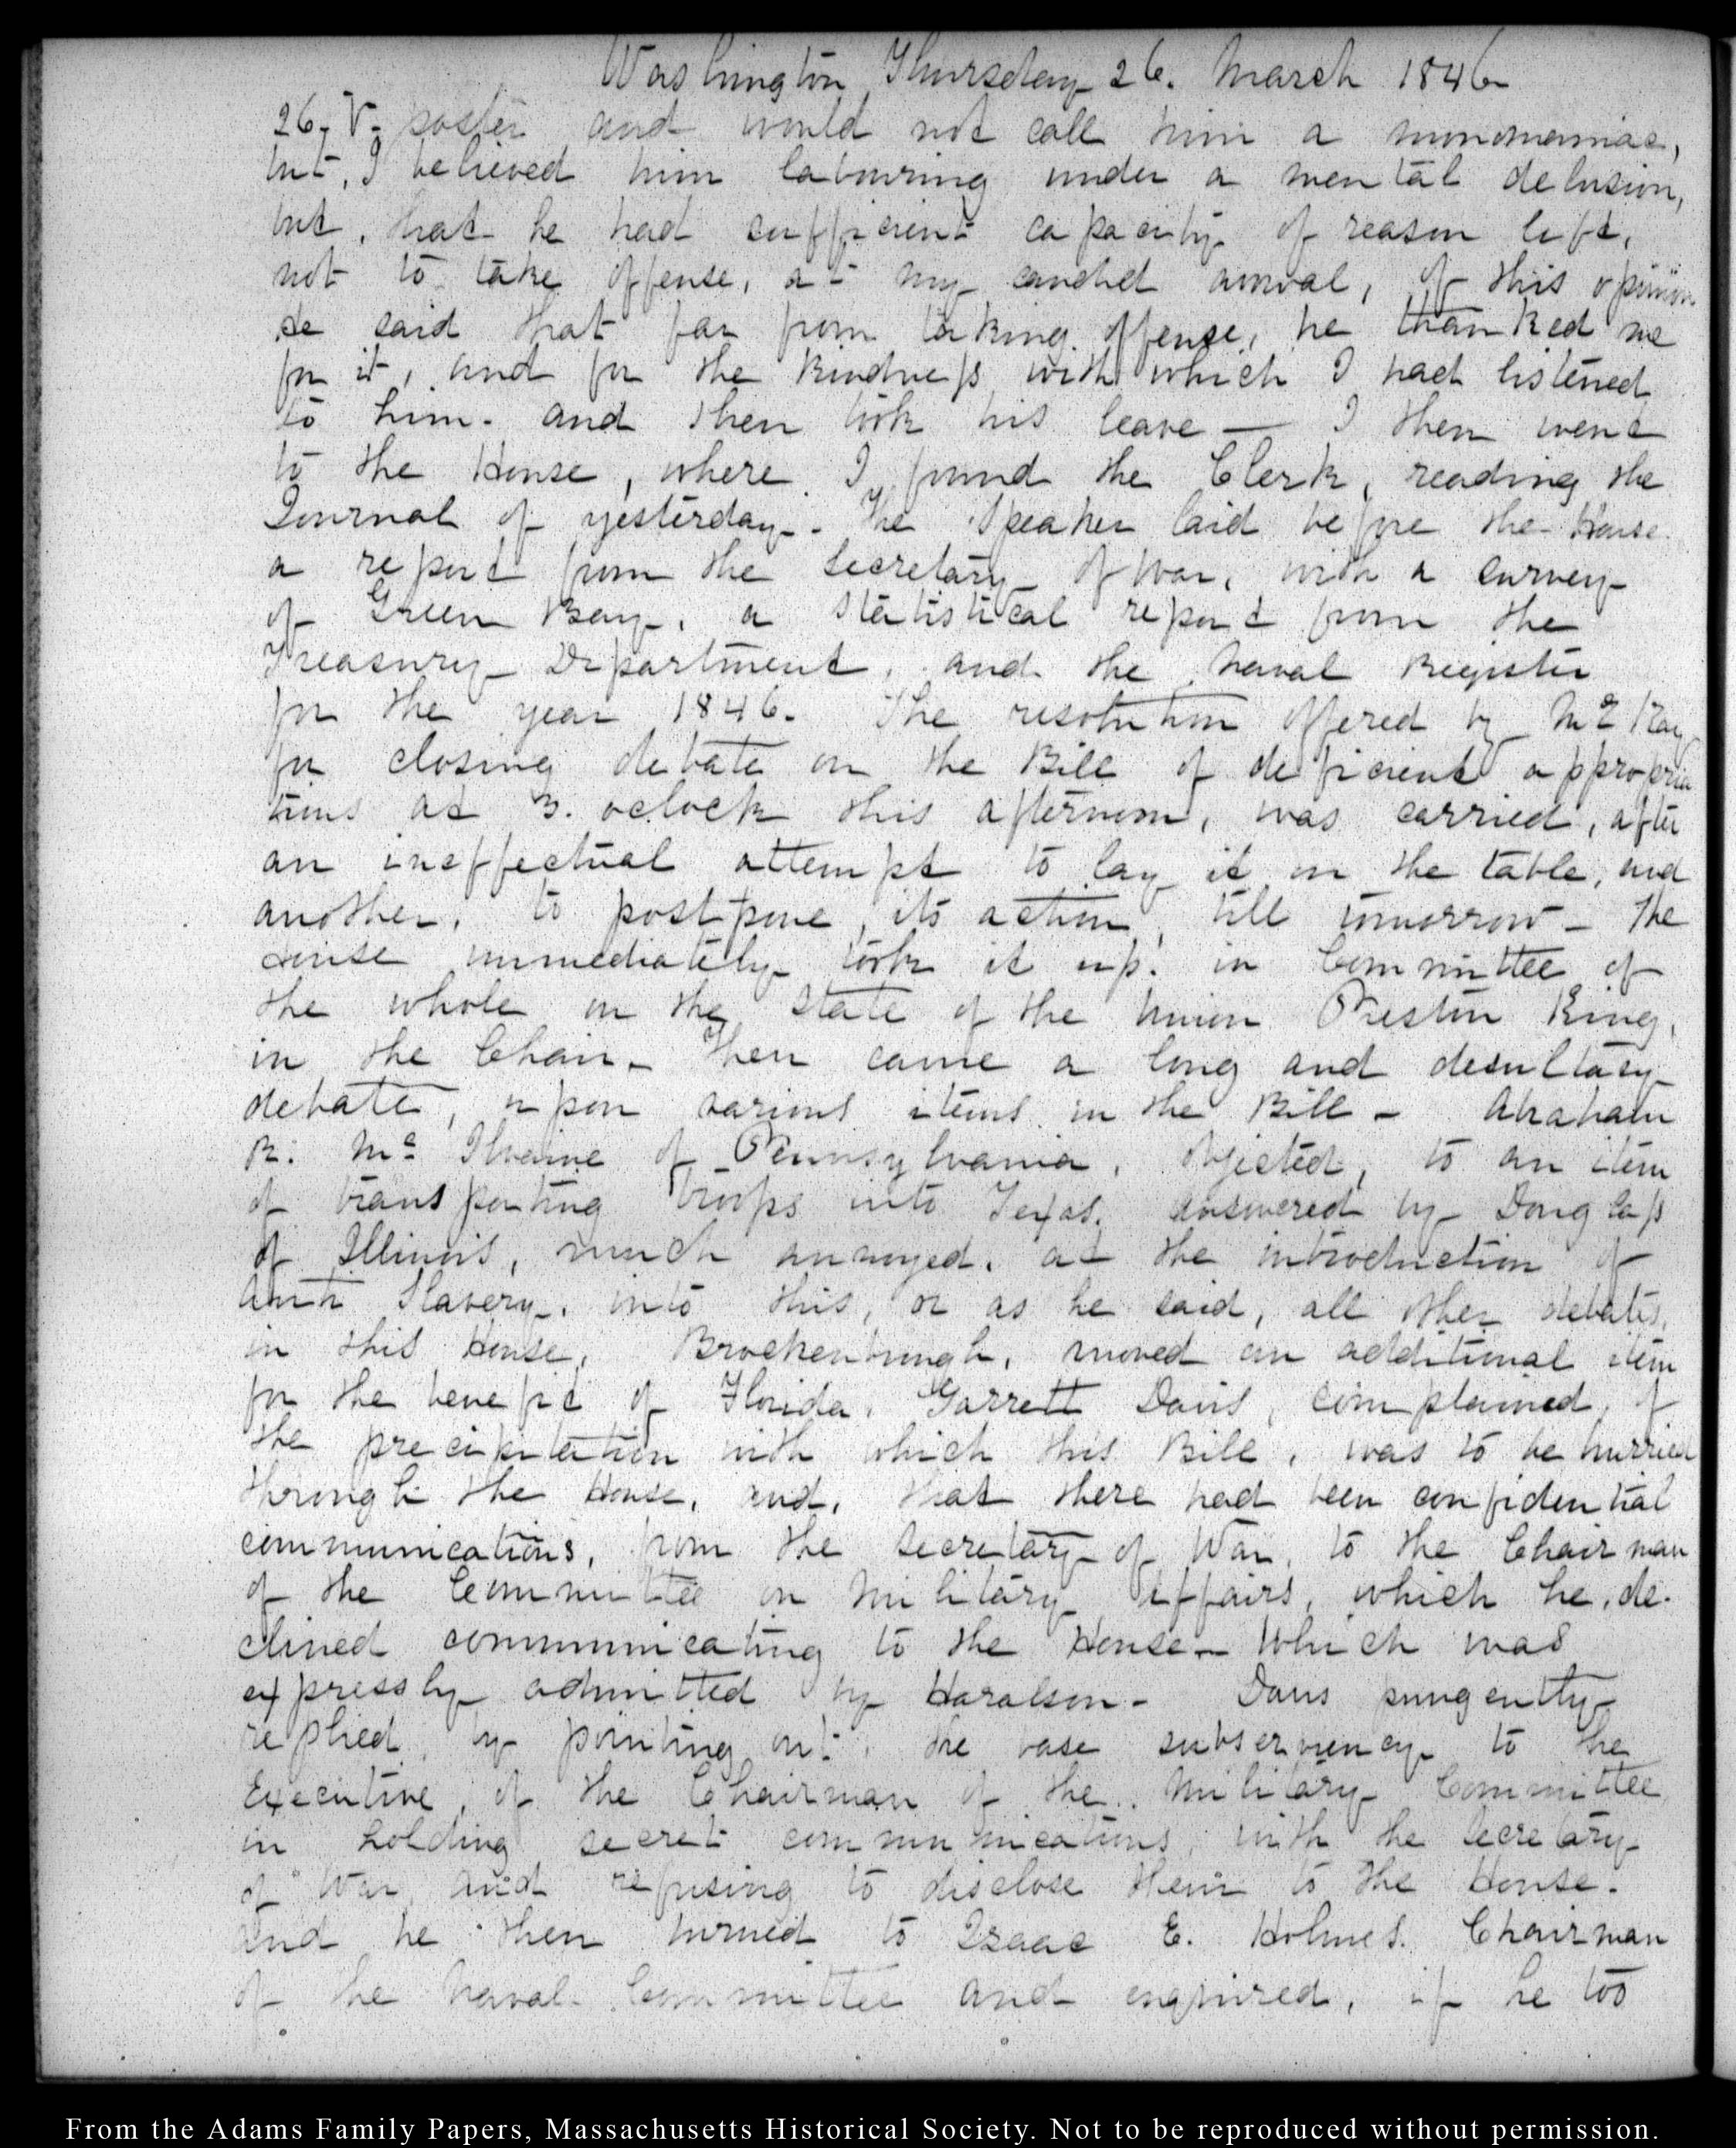 Washington Thursday 26. March 1846
26. V. and would not call him a monomaniac,
but, I believed him labouring under a mental delusion,
but, that he had sufficient capacity of reason left,
not to take offense, at my candid avowal, of this opinion
He said that far from taking offense, he thanked me
for it, and for the kindness with which I had listened
to him. and then took his leave — I then went
to the House, where I found the Clerk, reading the
Journal of yesterday. The Speaker laid before the House
a report from the Secretary of War, with a survey
of Green Bay, a statistical report from the
Treasury Department, and the Naval Register
for the year 1846. The resolution offered by Mc Kay
for closing debate on the Bill of deficient appropria
tions at 3. oclock this afternoon, was carried, after
an ineffectual attempt to lay it on the table, and
another, to postpone its action, till tomorrow - The
House immediately took it up. in Committee of
the whole on the state of the Union Preston King,
in the Chair. Then came a long and desultory
debate, upon various items in the Bill - Abraham
R. Mc Ilvaine of Pennsylvania, objected, to an item
of transporting troops into Texas. answered by Douglass
of Illinois, much annoyed, at the introduction of
Anti Slavery, into this, or as he said, all other debates,
in this House. Brockenbrough, moved an additional item
for the benefit of Florida. Garrett Davis, complained, of
the precipitation with which this Bill, was to be hurried
through the House, and, that there had been confidential
communications, from the Secretary of War, to the Chairman
of the Committee on Military Affairs, which he, de-
clined communicating to the House - Which was
expressly admitted by Haralson - Davis pungently
replied, by pointing out, the base subserviency to the
Executive, of the Chairman of the Military Committee
in holding secret communications, with the Secretary
of War, and refusing to disclose them to the House.
and he then turned to Isaac E. Holmes. Chairman
of the Naval Committee and enquired, if he too
From the Adams Family Papers, Massachusetts Historical Society. Not to be reproduced without permission.